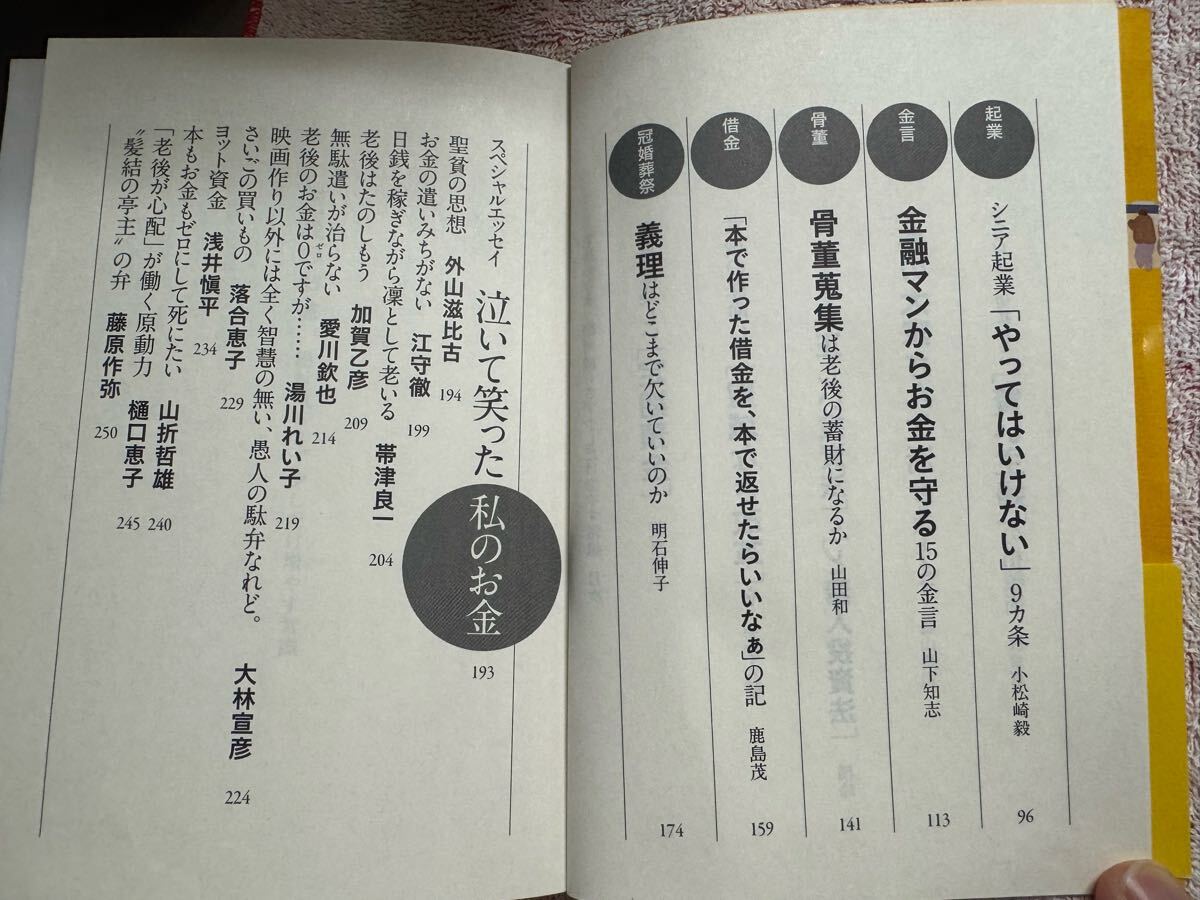 起業
シニア起業「やってはいけない」9カ条 小松崎毅 96
金言
金融マンからお金を守る15の金言 山下知志 113
骨董
骨董蒐集は老後の蓄財になるか 山田和 141
借金
「本で作った借金を、本で返せたらいいなぁ」の記 鹿島茂 159
冠婚葬祭
義理はどこまで欠いていいのか 明石伸子 174
スペシャルエッセイ 泣いて笑った私のお金 193
聖貧の思想 外山滋比古 194
お金の遣いみちがない 江守徹 199
日銭を稼ぎながら凜として老いる 帯津良一 204
老後はたのしもう 加賀乙彦 209
無駄遣いが治らない 愛川欽也 214
老後のお金は0ゼロですが…… 湯川れい子 219
映画作り以外には全く智慧の無い、愚人の駄弁なれど。 大林宣彦 224
さいごの買いもの 落合恵子 229
ヨット資金 浅井愼平 234
本もお金もゼロにして死にたい 山折哲雄 240
「老後が心配」が働く原動力 樋口恵子 245
〝髪結の亭主〟の弁 藤原作弥 250